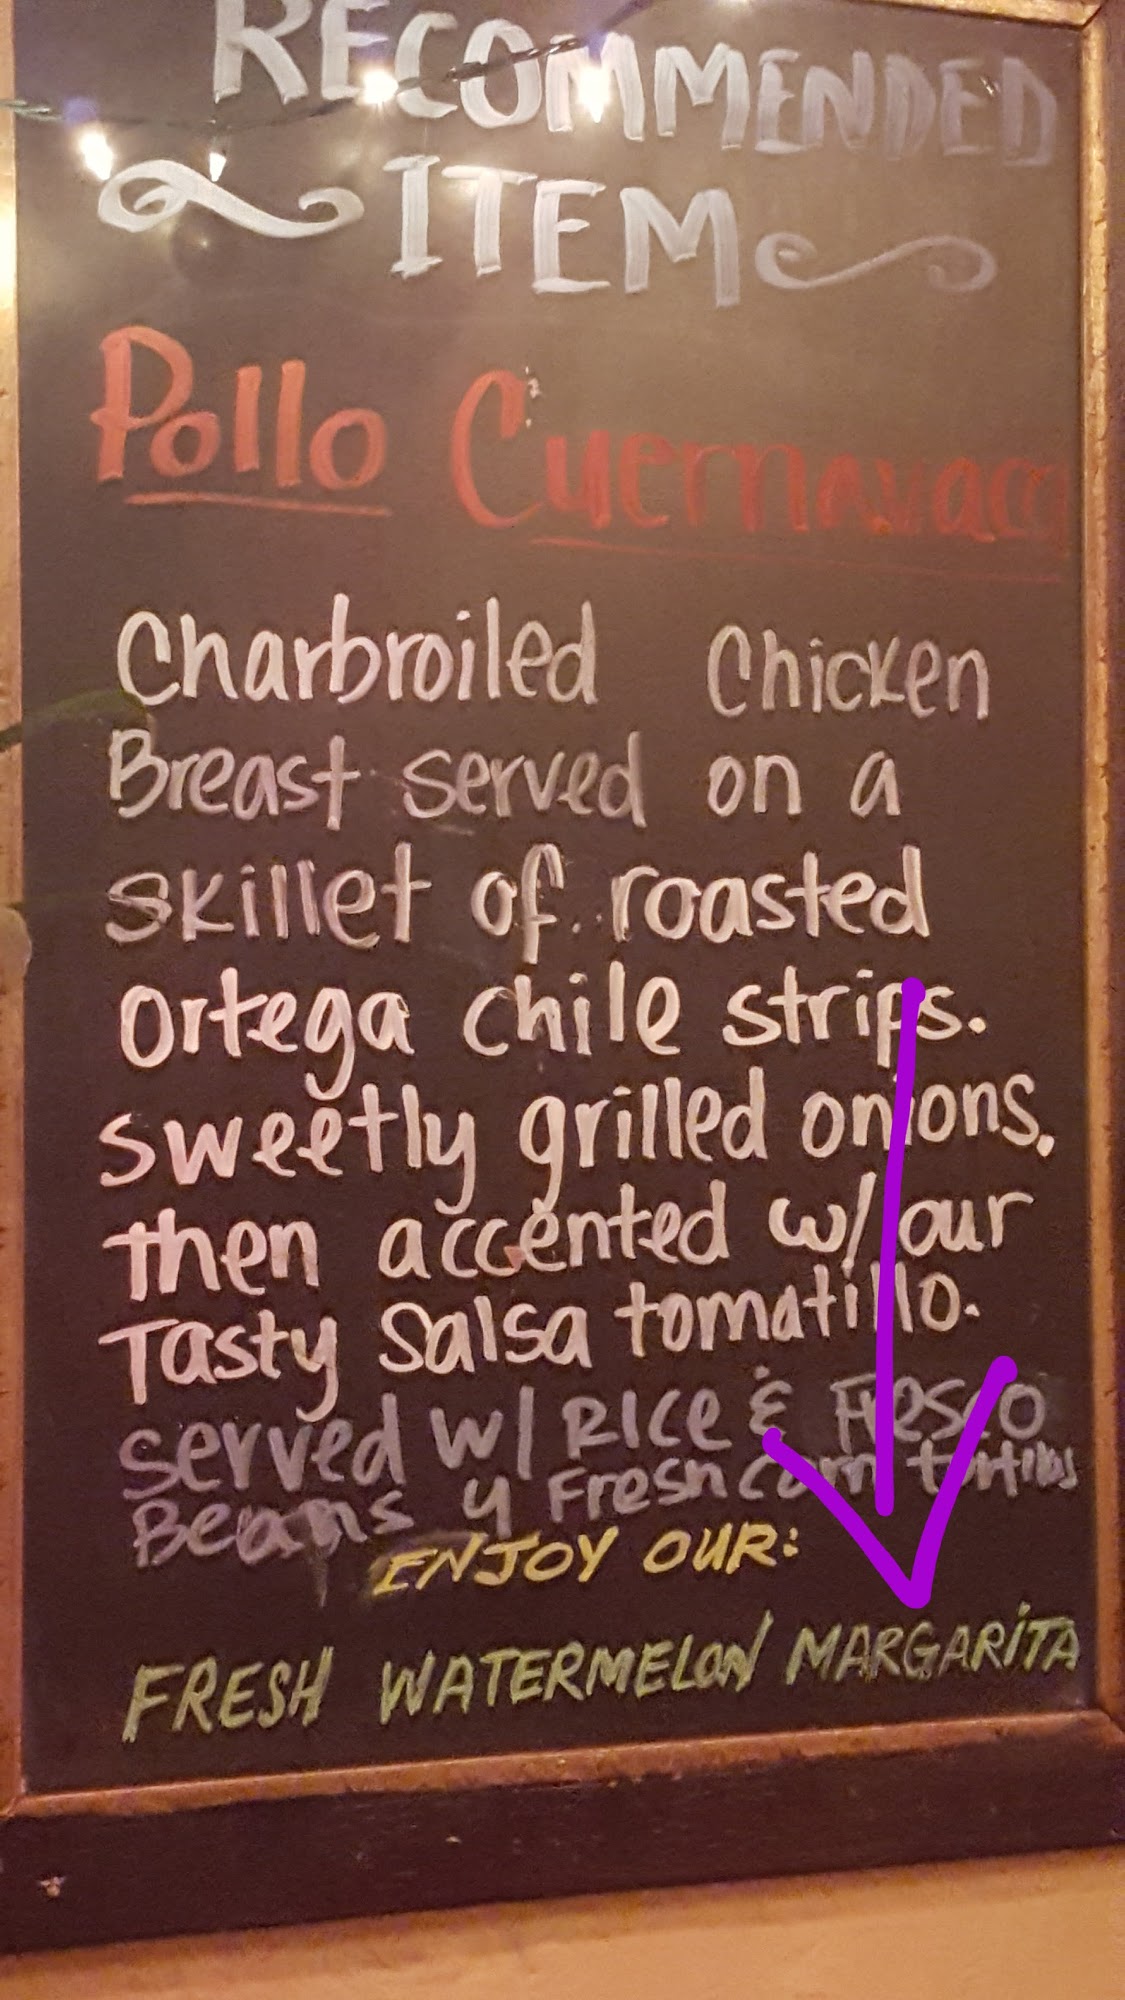 RECOMMENDED
ITEM
Pollo Cuernavaca
Charbroiled Chicken
Breast served on a
skillet of roasted
Ortega chile strips.
sweetly grilled onions.
then accented w/ our
Tasty Salsa tomatillo.
served w/ RICE & FRESCO
Beans y Fresh corn tortillas
ENJOY OUR:
FRESH WATERMELON MARGARITA